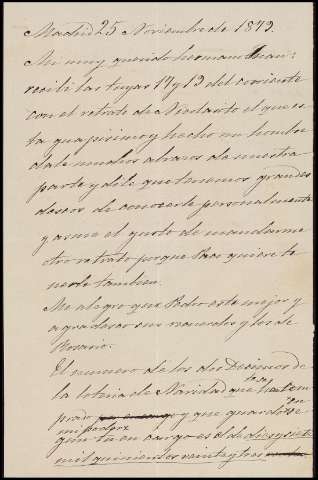 Madrid 25 Noviembre de 1879.
Mi muy querido hermano Juan:
recibí las tuyas 17 y 19 del corriente
con el retrato de el que es-
ta guapisimo y hecho un hombre
dale muchos abrazos de nuestra
parte y dile que tenemos grandes
deseos de conocerle personalmente
y el gusto de mandarme
otro retrato porque Paco quiere te
nerle tambien.
Me alegro que Pedro este mejor y
agradezco sus recuerdos y los de
Rosario.
El numero de los dos Decimos de
la loteria de Navidad que has com
prado y que guardo en
mi poder
segun tu encargo es el de diez y siete
mil quinientos veinte y tres